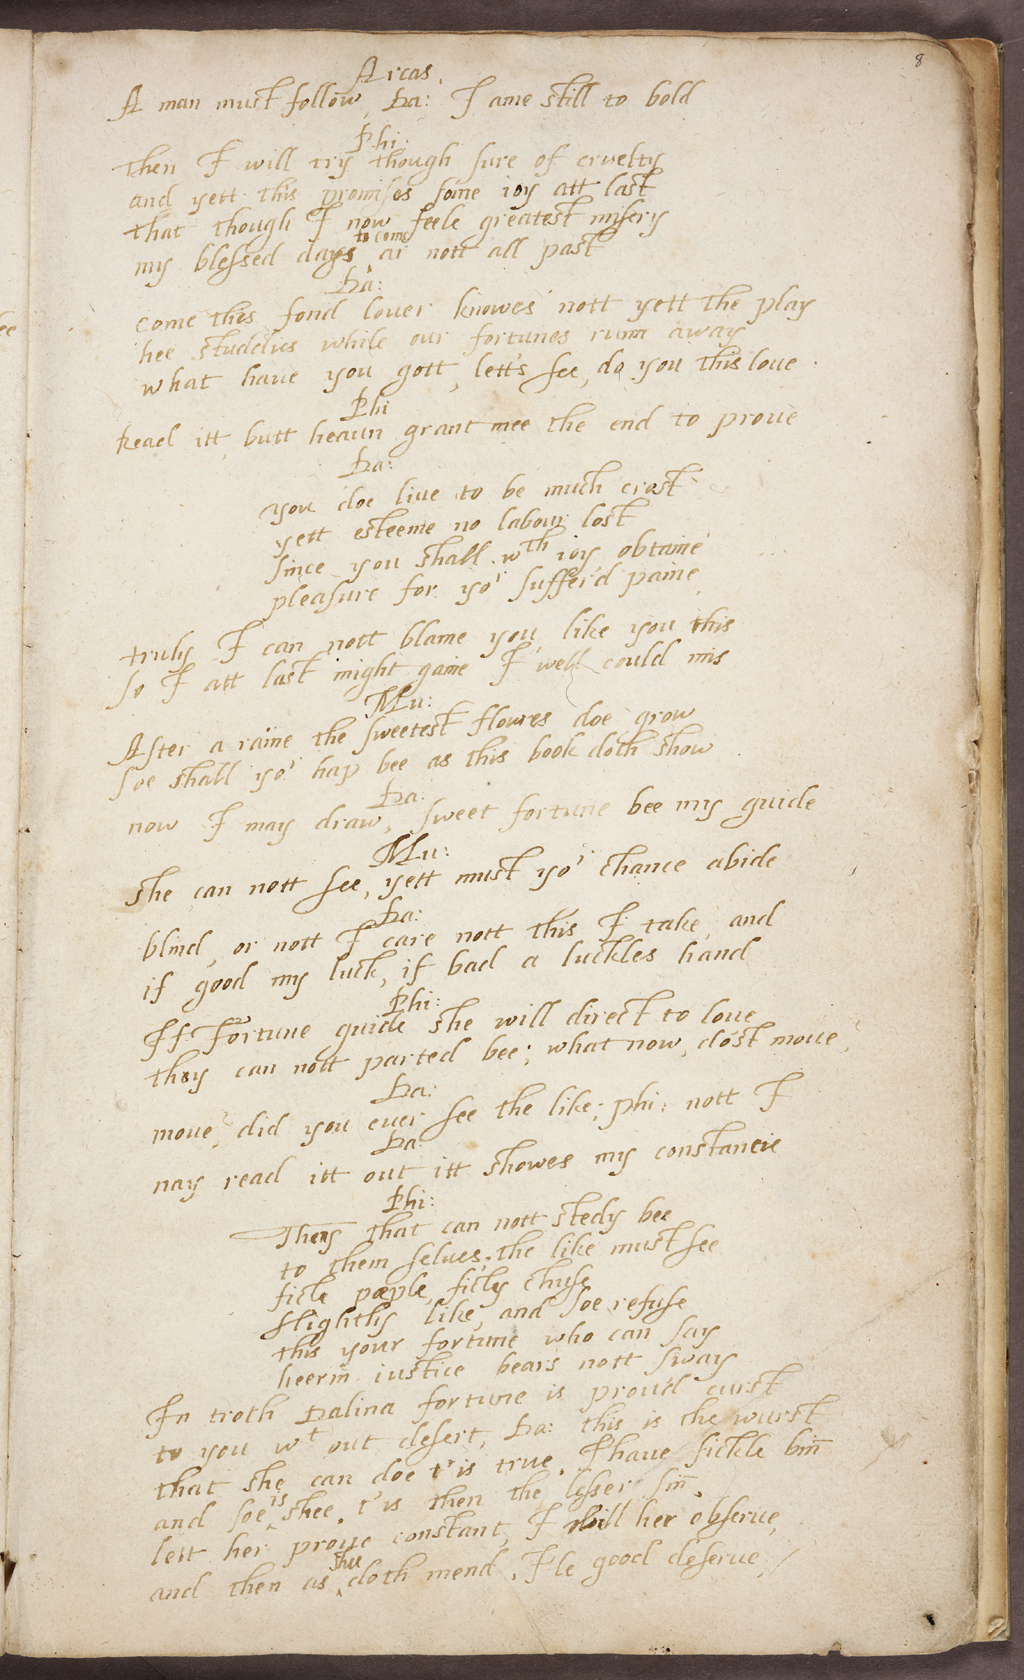 8
Arcas.
A man must follow, Da: I ame still to bold
Phi:
then I will try though sure of cruelty
and yett this promises some ioy att last
that though I now feele greatest misery
my blessed days to come ar nott all past
Da:
come this fond louer knowes nott yett the play
hee studdies while our fortunes runn away
what haue you gott, letts see, do you this loue
Phi
Read itt, butt heaun grant mee the end to proue
Da:
you doe liue to be much crost
yett esteeme no labour lost
since you shall wth ioy obtaine
pleasure for yor suffer'd paine,
truly I can nott blame you, like you this
so I att last might gaine I well could mis
Mu:
After a raine the sweetest flowres doe grow
soe shall yor hap bee as this book doth show
Da:
now I may draw, sweet fortune bee my guide
Mu:
she can nott see, yett must yor chance abide
Da:
blind, or nott I care nott this I take, and
if good my luck, if bad a luckles hand
Phi:
If Fortune guide she will direct to loue
they can nott parted bee; what now, dost moue,
Da:
moue, did you euer see the like; phi: nott I
Da:
nay read itt out itt showes my constancie
Phi:
They that can nott stedy bee
to them selues, the like must see
ficle pœple, ficly chuse
slightly like, and soe refuse
this your fortune who can say
heerin iustice bears nott sway
In troth Dalina fortune is prou'd curst
to you wt out desert, Da: this is the wurst
that she can doe t'is true, I haue fickle binn
and soe is shee, t'is then the lesser sinn,
lett her proue constant, I will her obserue,
and then as shee doth mend, I'le good deserue,/